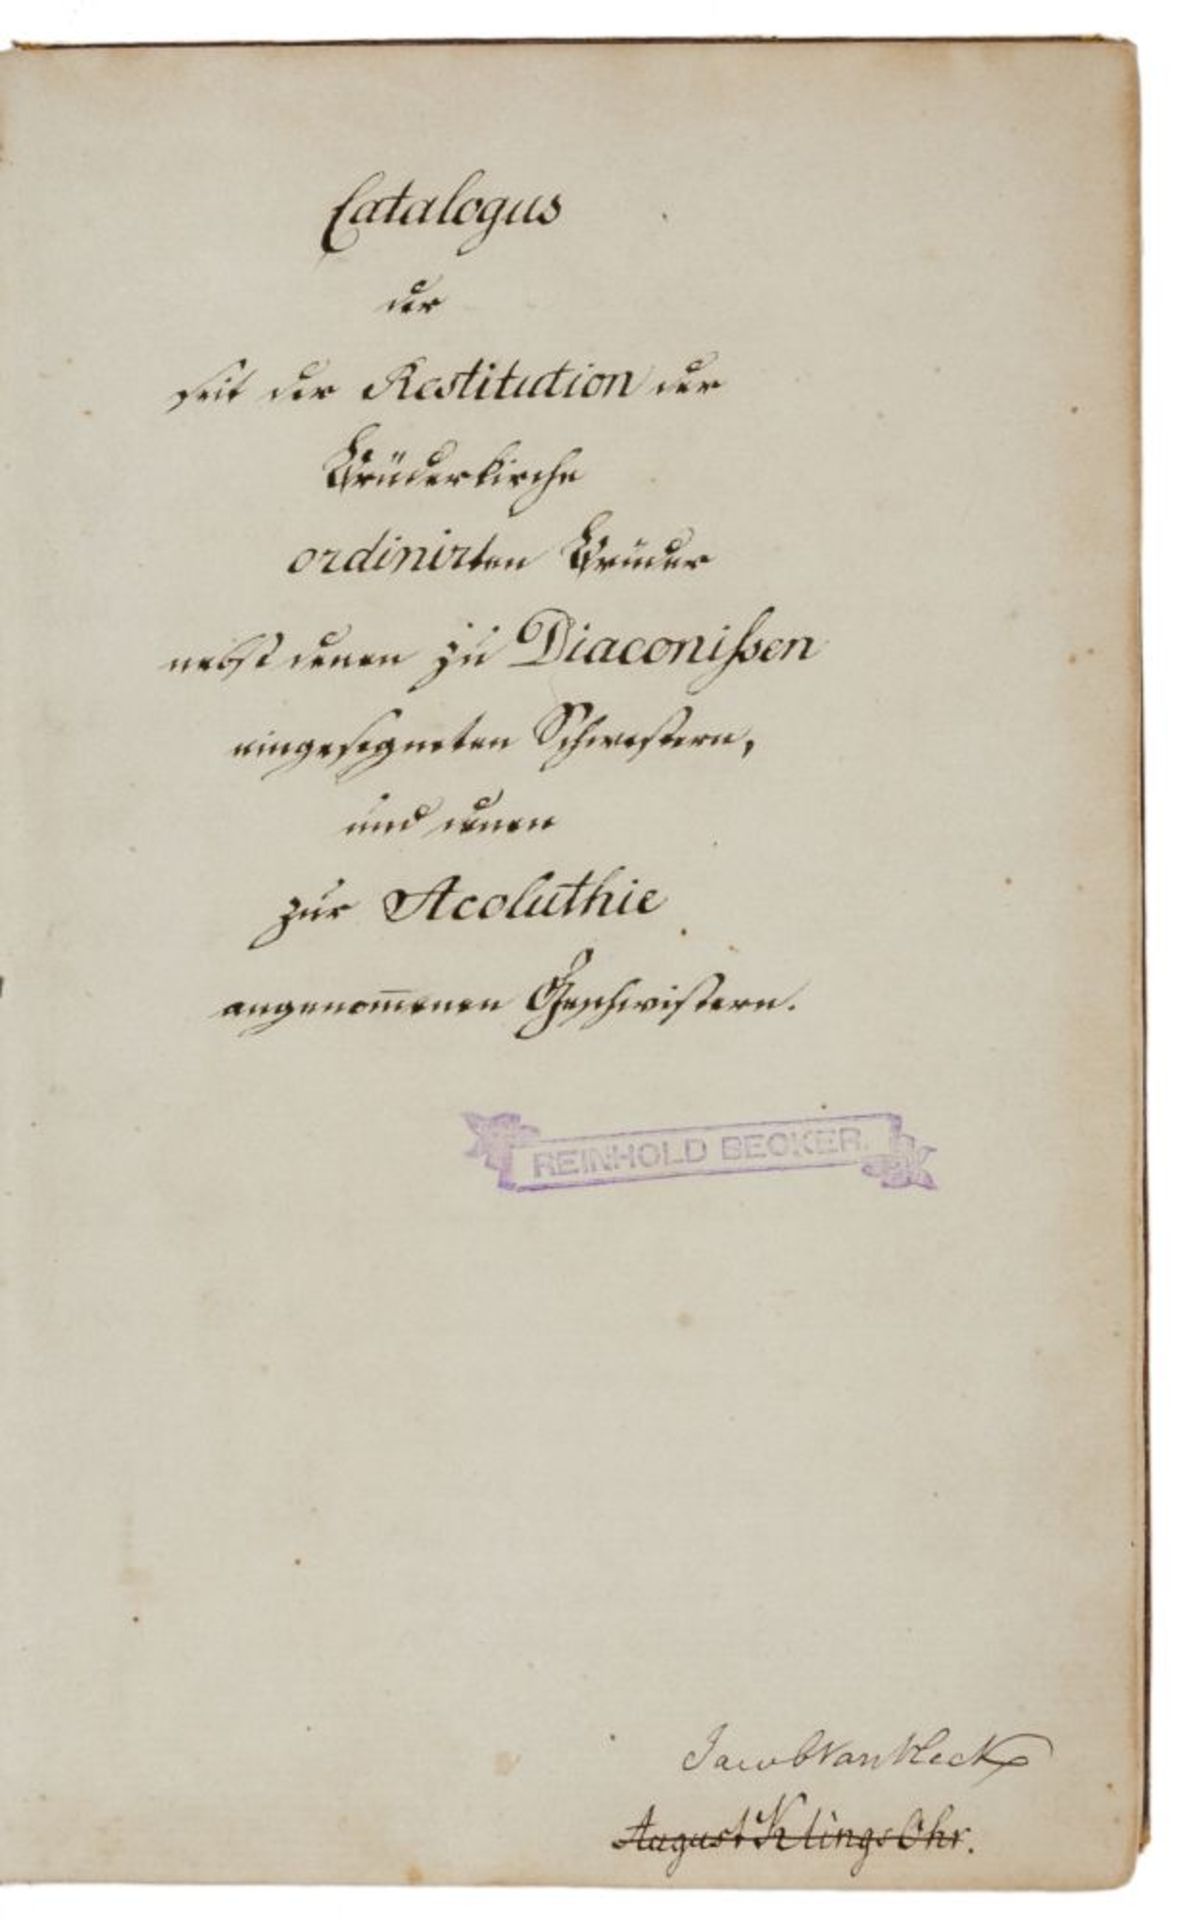 Catalogus
der
seit der Restitution der
Brüderkirche
ordinirten Brüder
nebst denen zu Diaconissen
eingesegneten Schwestern,
und denen
zur Acoluthie
angenom̅enen Geschwistern.
REINHOLD BECKER.
Jacob Van Vleck
August Klingsohr.